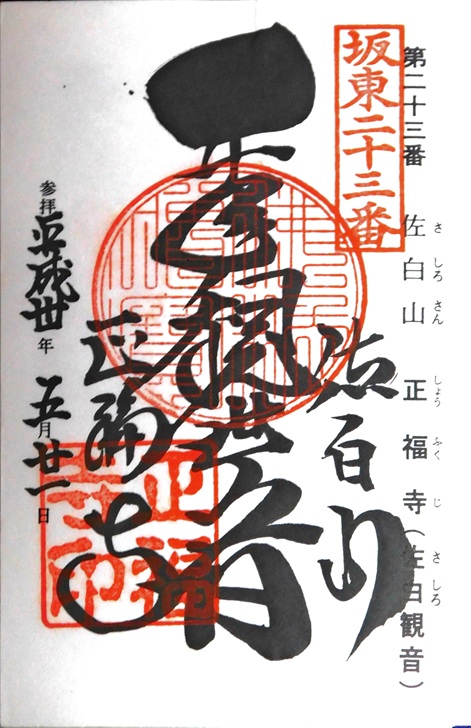 第二十三番 佐白山 正福寺(佐白観音)
さ しろ さん しょう ふく じ さ しろ
坂東二十三番
佐白山
正福寺
参拝 平成卅年 五月廿一日
正福寺印